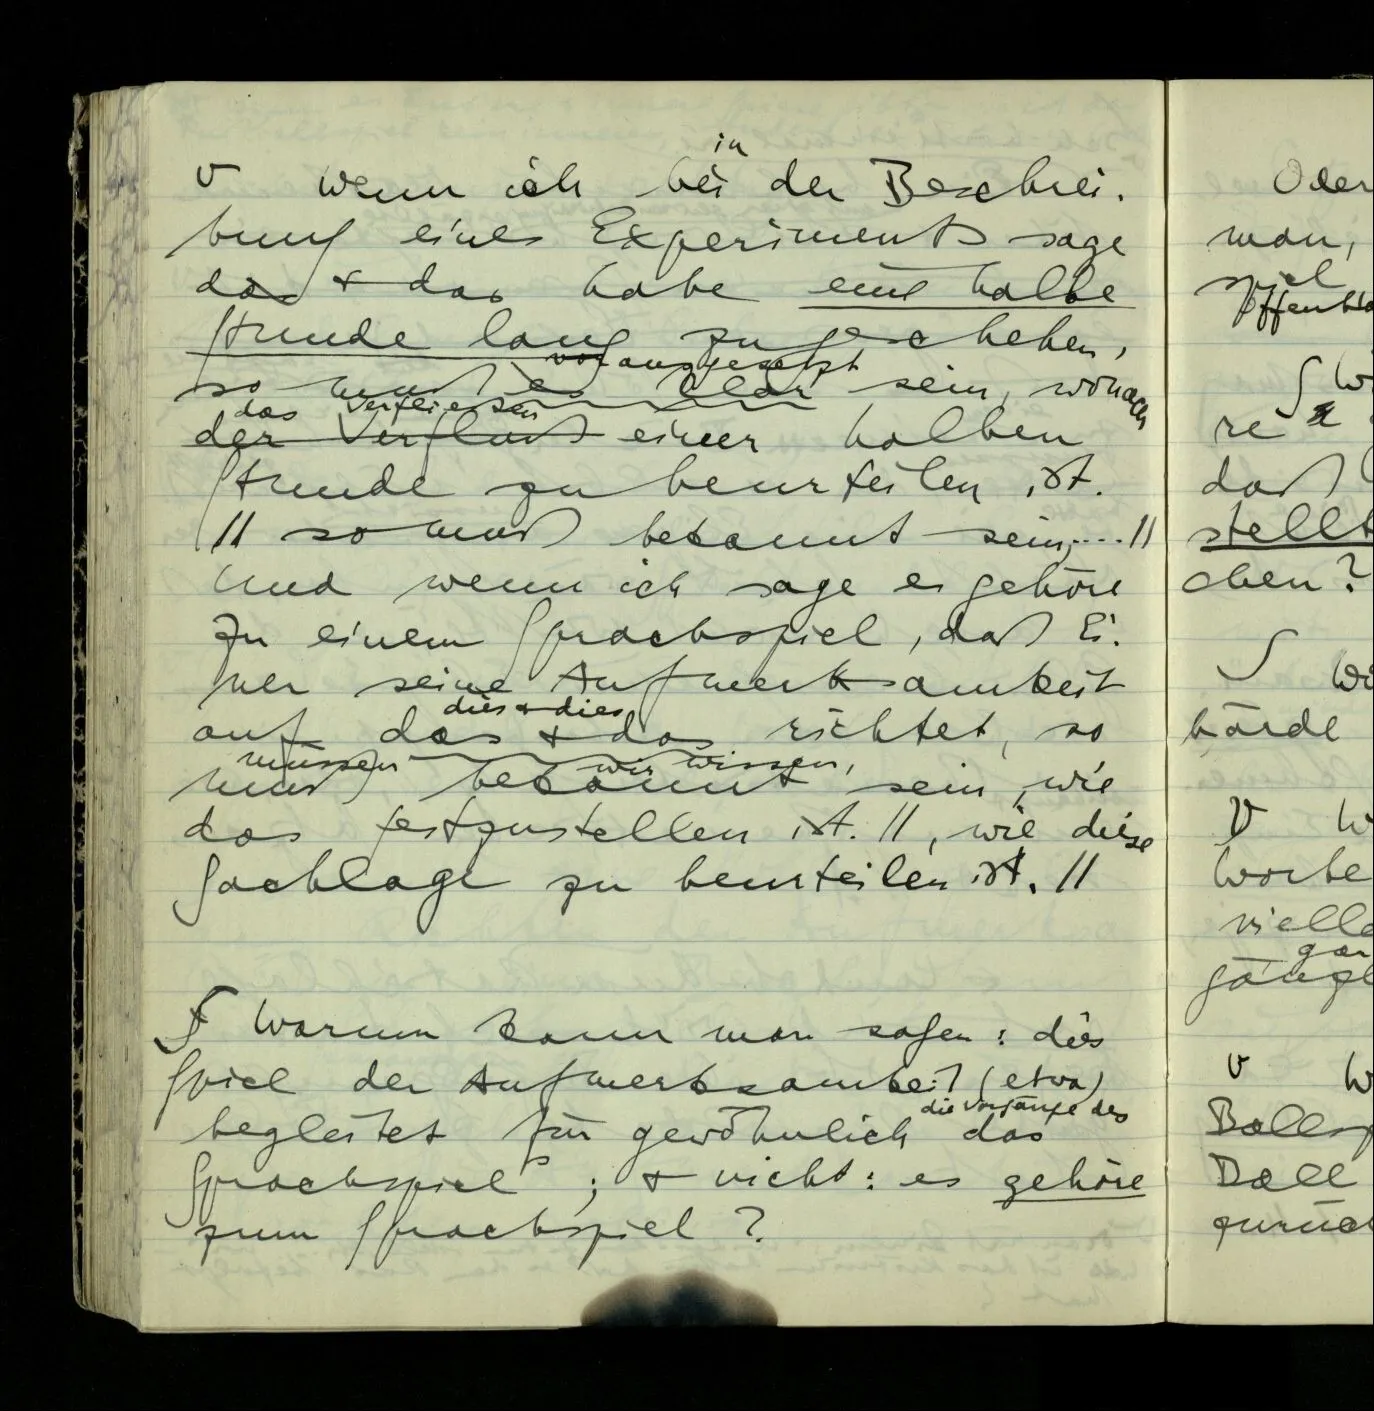 in
v Wenn ich bei der Beschrei-
bung eines Experiments sage
das & das habe eine halbe
Stunde lang zu geschehen,
vorausgesetzt
so muß es klar sein, wonach
das Verfliessen
der Verfluß einer halben
Stunde zu beurteilen ist.
// so muß bekannt sein, .... //
Und wenn ich sage es gehöre
zu einem Sprachspiel, daß Ei-
ner seine Aufmerksamkeit
dies & dies
auf das & das richtet, so
müssen wir wissen,
muß bekannt sein, wie
das festzustellen ist. //, wie diese
Sachlage zu beurteilen ist. //
∫ Warum kann man sagen: dies
Spiel der Aufmerksamkeit (etwa)
die Vorgänge des
begleitet für gewöhnlich das
Sprachspiel; & nicht: es gehöre
zum Sprachspiel?
Oder
man,
spiel
∫ Wi
re
daß
stellt
chen?
∫ Wi
hörde
v W
Worte
vielle
gän
v W
Balls
Ball
zurück